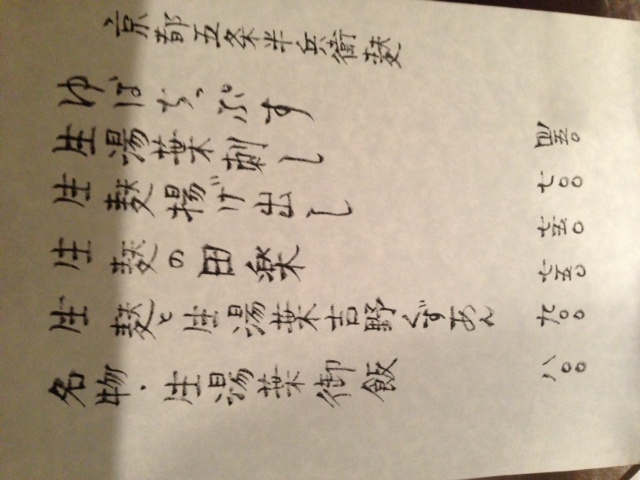 京都五条半兵衛麩
ゆばちっぷす 四五〇
生湯葉刺し 七〇〇
生麩揚げ出し 七五〇
生麩の田楽 七五〇
生麩と生湯葉吉野くずあん 九〇〇
名物・生湯葉御飯 八〇〇